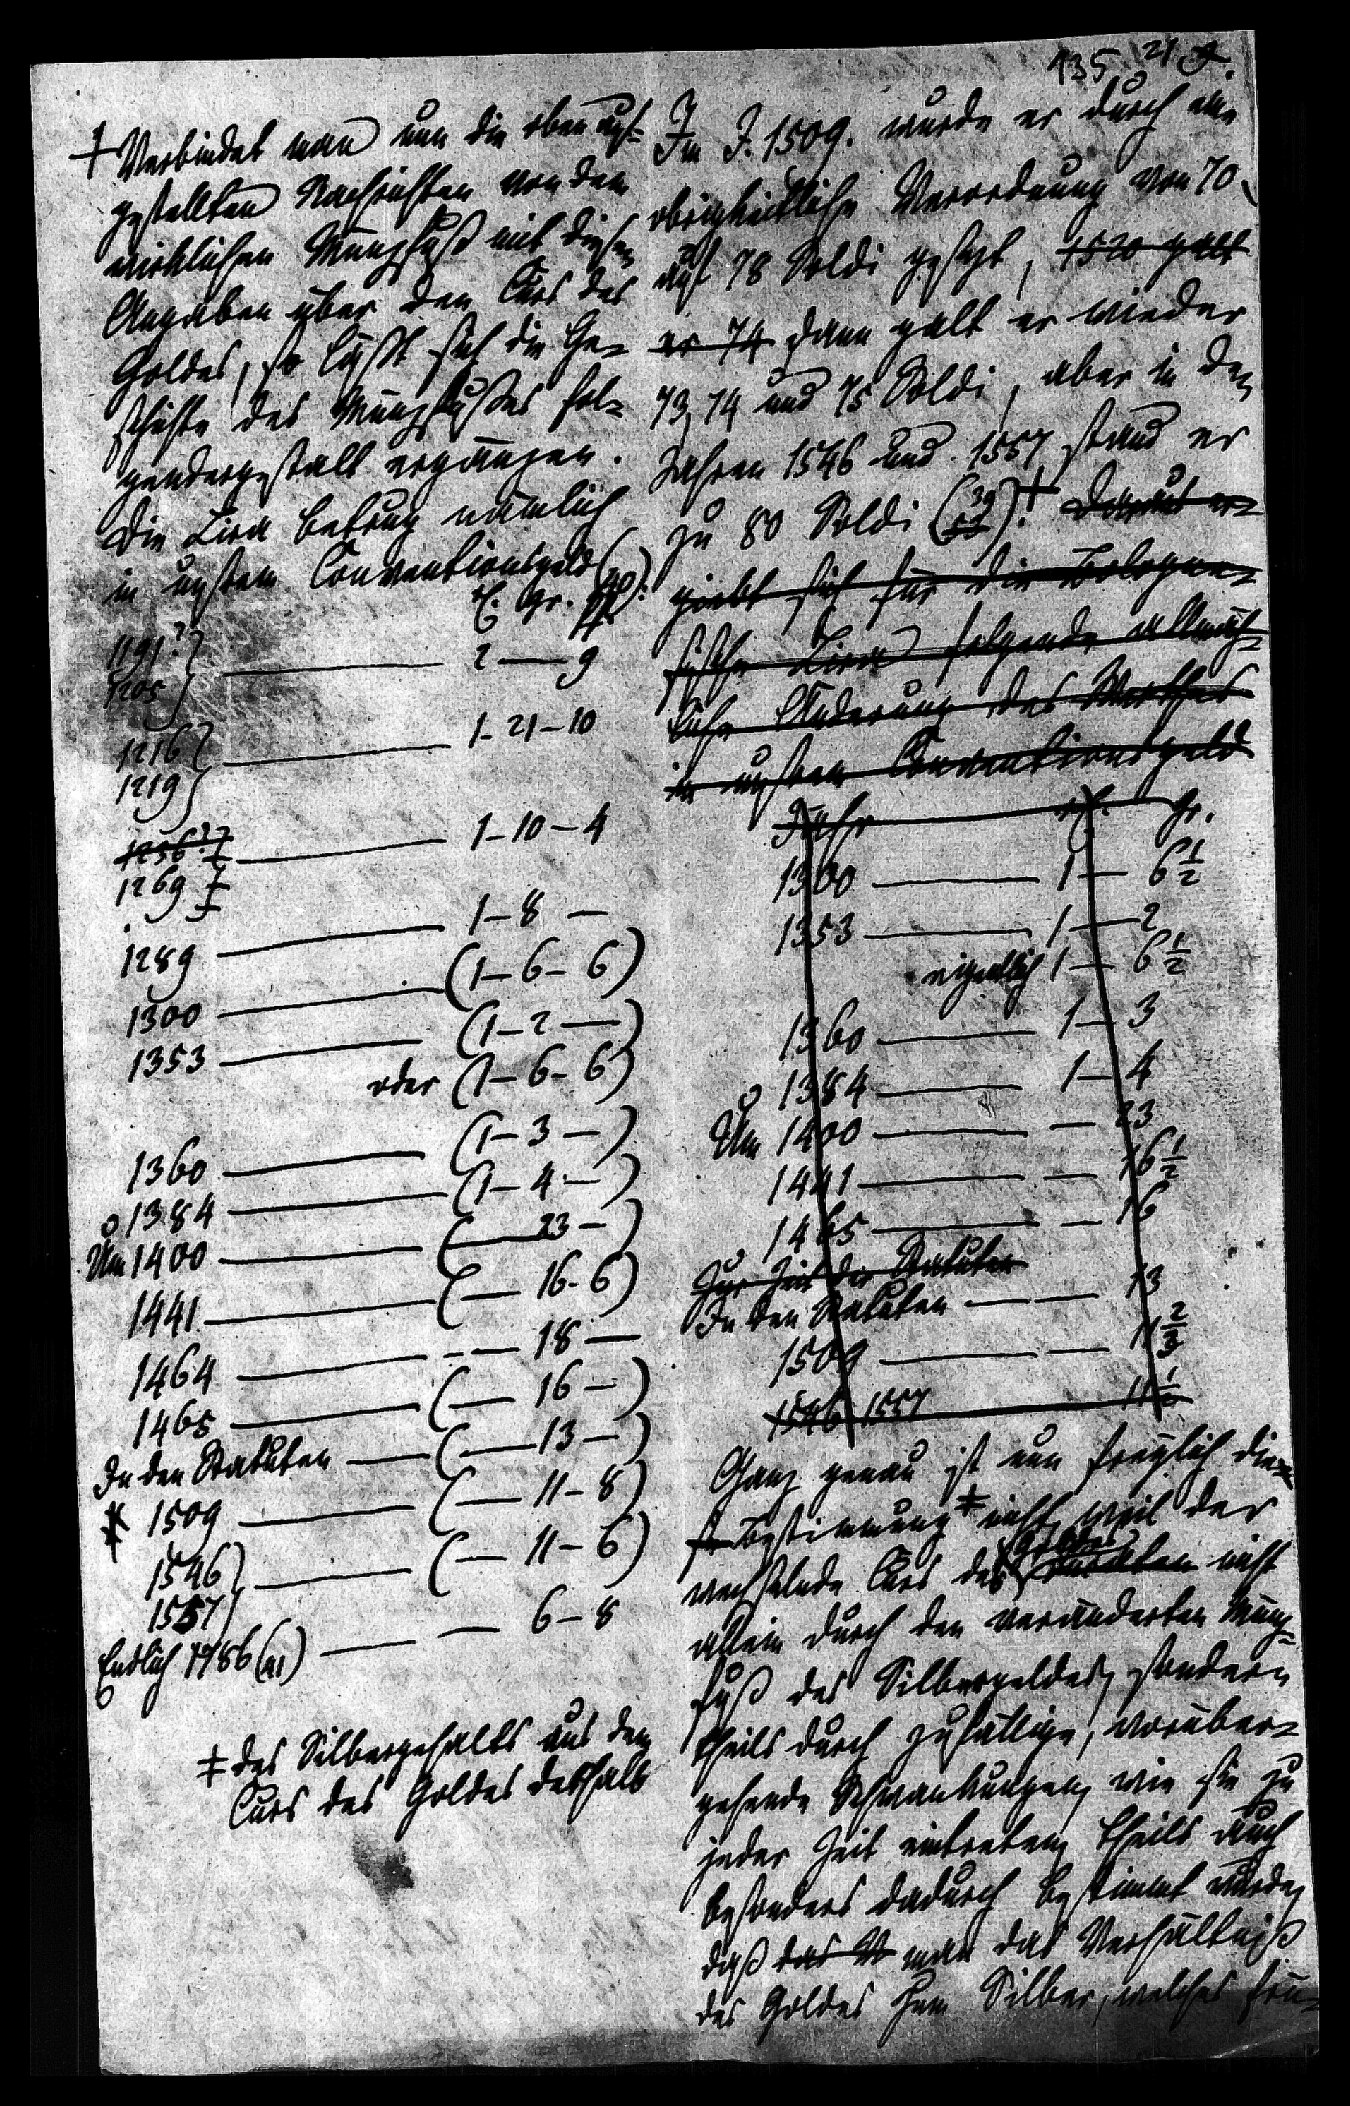 135. 21
+ Verbindet man nun die oben auf-
gestellten Nachrichten von dem
wirklichen Münzfuß mit diesen
Angaben über den Curs des
Goldes, so läßt sich die Ge-
schichte des Münzfußes fol-
gendergestalt ergänzen.
Die Lira betrug nämlich
in unsrem Conventionsgeld (40).
gr.
1191?}
1205} — 2 — 9
1216}
1219} — 1 – 21 – 10
1256?}
1269} — 1 – 10 – 4
1289 — 1 – 8 —
1300 — (1 – 6 – 6)
1353 — (1 – 2 —)
oder (1 – 6 – 6)
1360 — (1 – 3 —)
1384 — (1 – 4 —)
Um 1400 — (— 23 —)
1441 — (— 16 – 6)
1464 — — 18 —
1465 — (— 16 —)
In den Statuten — (— 13 —)
1509 — (— 11 – 8)
1546}
1557} — (— 11 – 6)
Endlich 1786 (41) — — 6 – 8
‡ des Silbergehalts aus dem
Curs des Goldes deshalb
Im J. 1509. wurde er durch eine
obrigkeitliche Verordnung von 70
auf 78 Soldi gesetzt, 1520 galt
er 74 dann galt er wieder
73, 74 und 75 Soldi, aber in den
Jahren 1546 und 1557 stand er
zu 80 Soldi (39).+ Daraus er-
giebt sich für die Bologne-
sische Lira folgende allmäh-
liche Änderung des Werthes
in unsrem Conventionsgeld
Jahr rth. gr.
1300 — 1 — 6 1/2
1353 — 1 — 2
eigentlich 1 — 6 1/2
1360 — 1 — 3
1384 — 1 — 4
Um 1400 — — 23
1441 — — 16 1/2
1465 — — 16
Zur Zeit der Statuten
In den Statuten — — 13
1509 — — 11 2/3
1546 1557 11 1/2
Ganz genau ist nun freylich die-
se Bestimmung ‡ nicht, weil der
wechselnde Curs des Goldes nicht
allein durch den veränderten Münz-
fuß des Silbergeldes, sondern
theils durch zufällige, vorüber-
gehende Schwankungen, wie sie zu
jeder Zeit eintreten, theils auch
besonders dadurch bestimmt wurde,
daß das V man das Verhältniß
des Goldes zum Silber, welches frü-